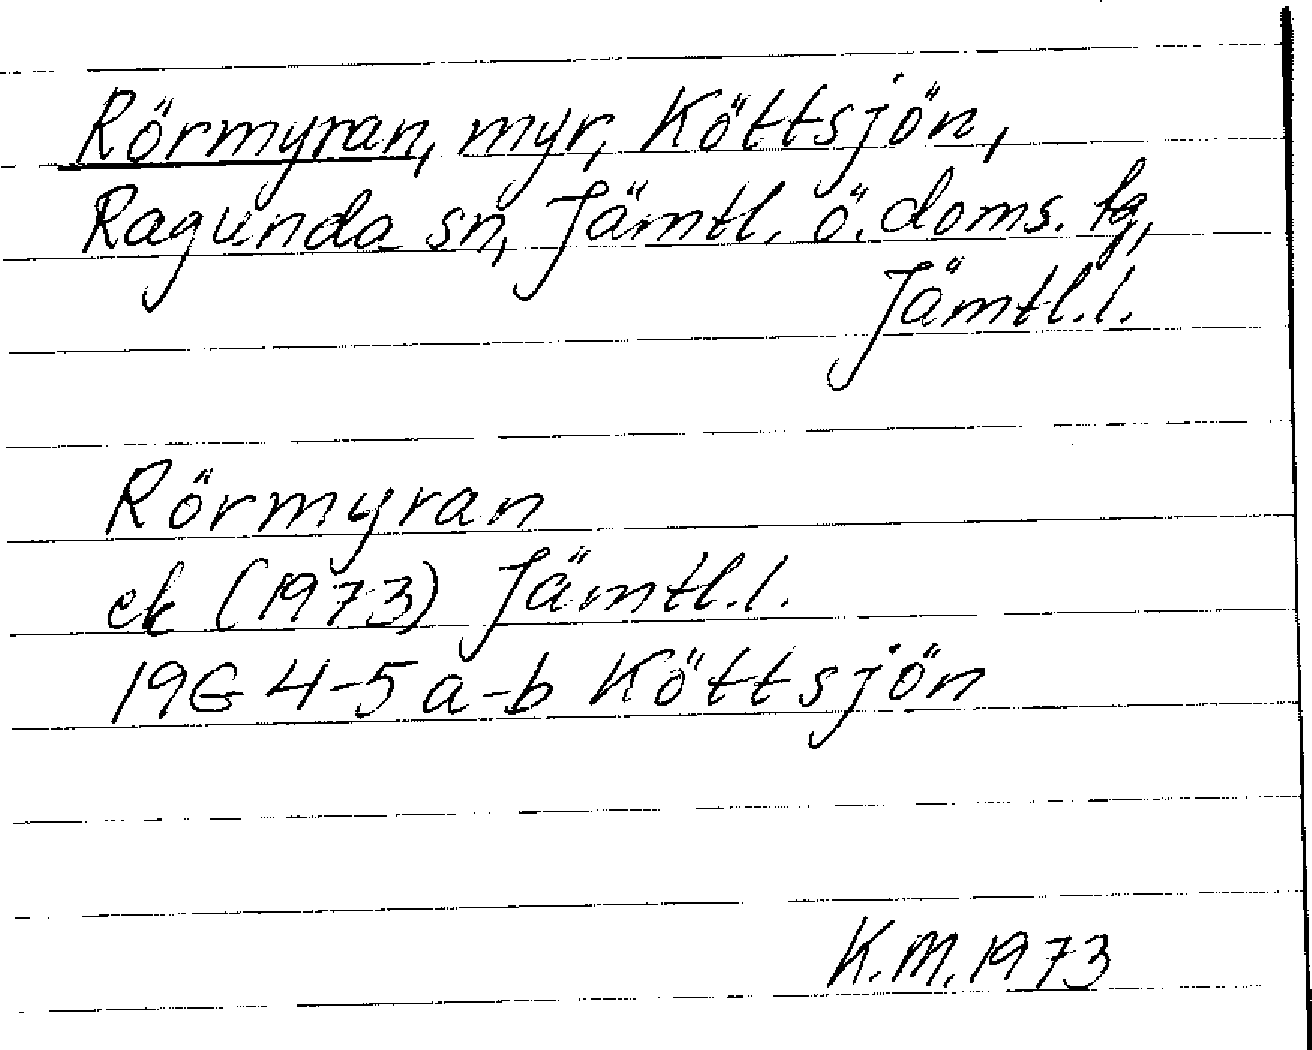 Rörmyran, myr, Köttsjön,
Ragunda sn, Jämtl. ö. doms. tg,
Jämtl.l.
Rörmyran
ek (1973) Jämtl.l.
19G 4-5 a-b Köttsjön
K.M. 1973